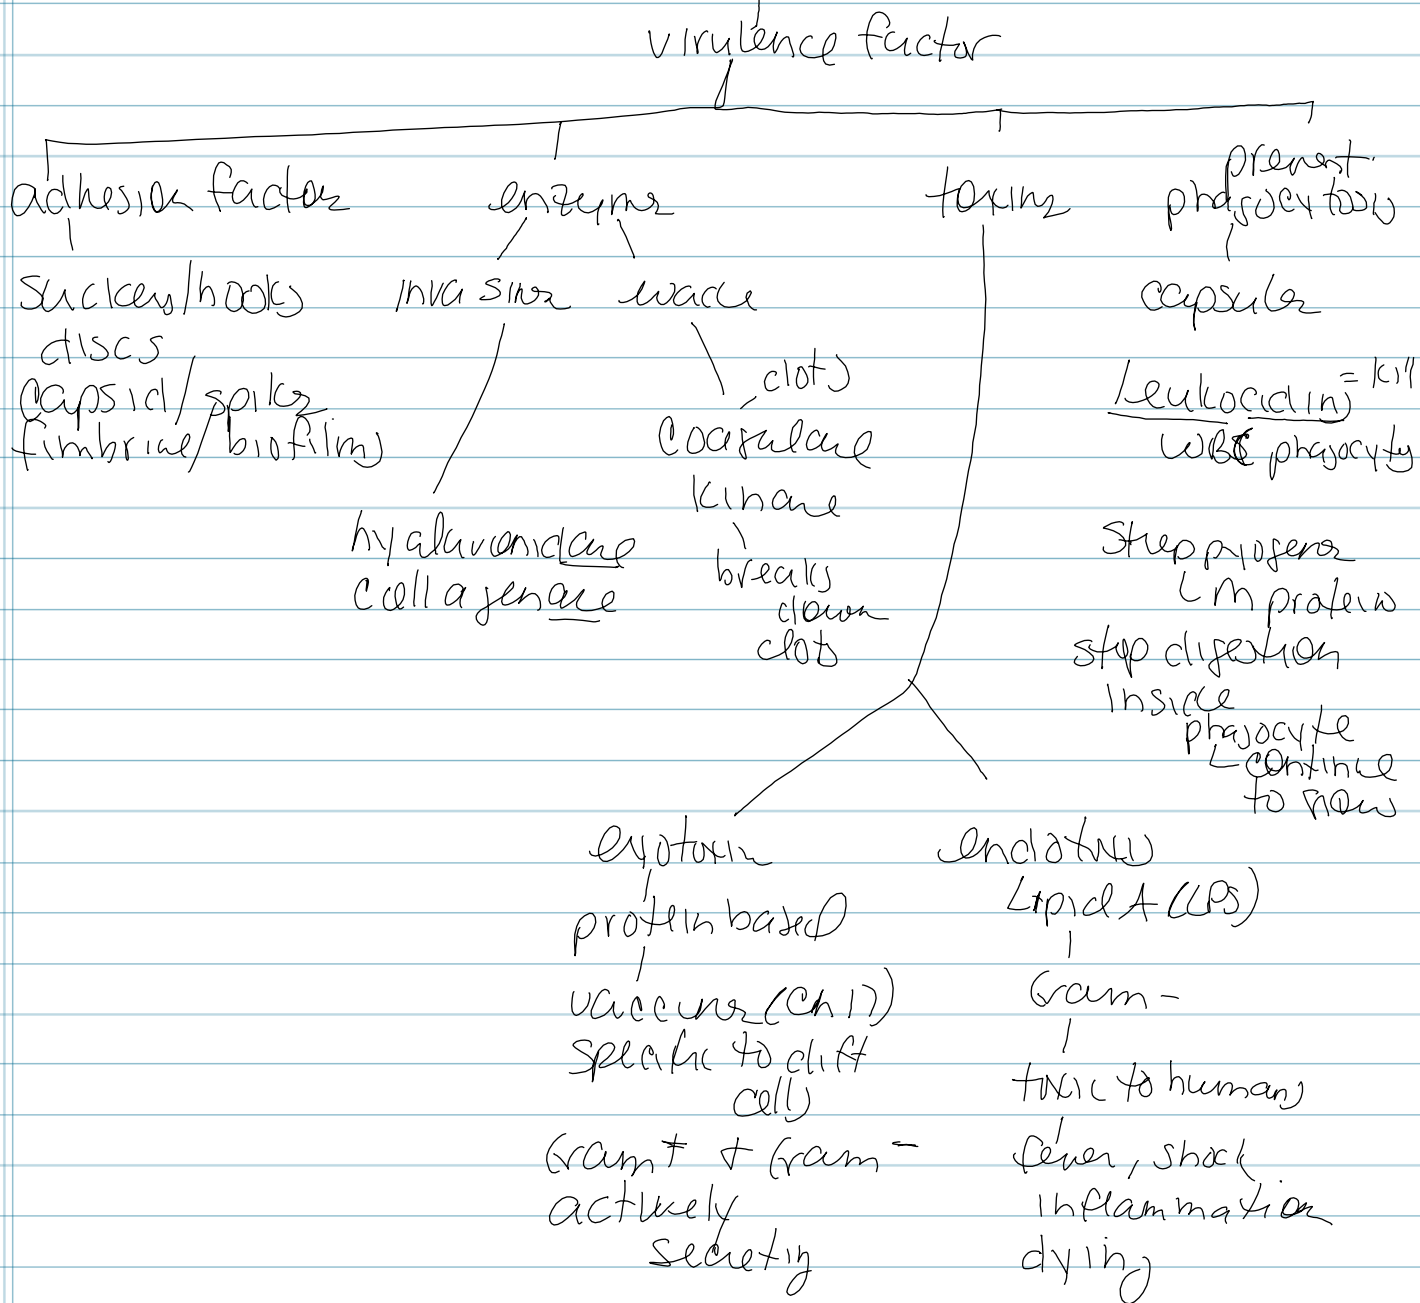 virulence factor
adhesion factor
suckers/hooks
discs
capsid/spikes
fimbriae/biofilms
enzymes
invasins
evade
hyaluronidase
collagenase
clots
coagulase
kinase
breaks
down
clots
toxins
exotoxin
protein based
vaccines (Ch 17)
specific to diff
cells
Gram + + Gram -
actively
secreting
endotoxin
Lipid A (LPS)
Gram -
toxic to humans
fever, shock
inflammation
dying
prevent
phagocytosis
capsules
Leukocidins = kill
WBC phagocyty
Strep pyogenes
M protein
stop digestion
inside
phagocyte
continue
to grow